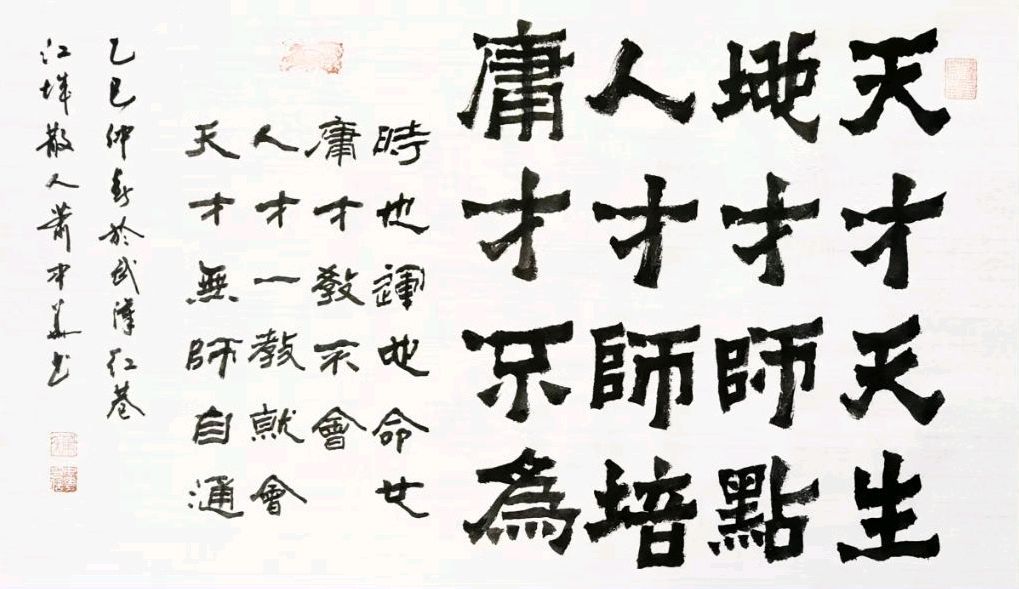 天才天生
地才師點
人才師培
庸才不為
時也運也命也
庸才教不會
人才一教就會
天才無師自通
乙巳仲春於武漢红巷
江城散人蕭才书